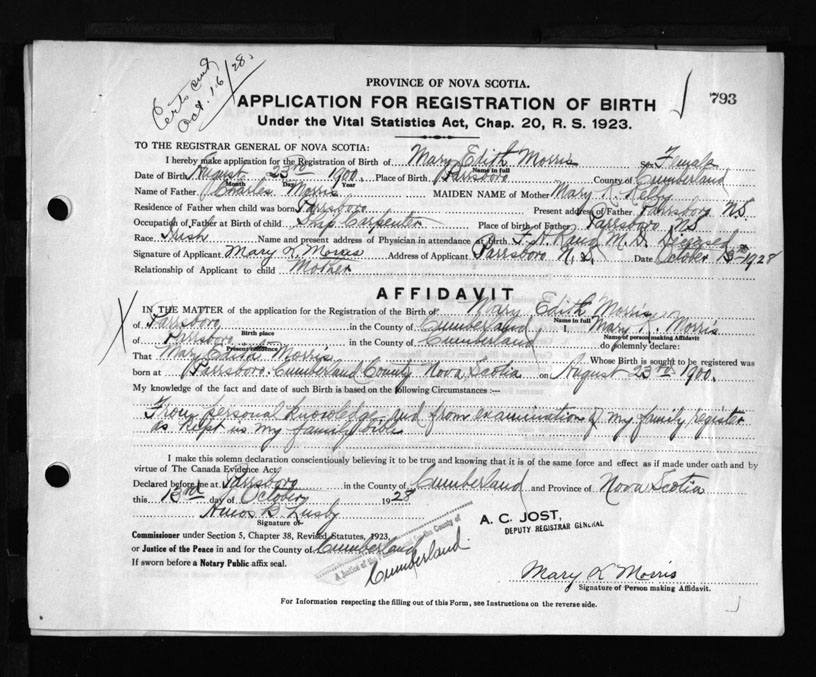 Cert. and
Oct. 16/28.
PROVINCE OF NOVA SCOTIA.
793
APPLICATION FOR REGISTRATION OF BIRTH
Under the Vital Statistics Act, Chap. 20, R. S. 1923.
TO THE REGISTRAR GENERAL OF NOVA SCOTIA:
I hereby make application for the Registration of Birth of Mary Edith Morris Sex Female
Name in full
Date of Birth August 23rd 1900. Place of Birth Parrsboro County of Cumberland
Month Day Year
Name of Father Charles Morris MAIDEN NAME of Mother Mary K.
Residence of Father when child was born Parrsboro Present address of Father Parrsboro N.S.
Occupation of Father at Birth of child Ship Carpenter Place of birth of Father Parrsboro N.S.
Race Irish Name and present address of Physician in attendance at Birth F. A. Rand M. D. Deceased
Signature of Applicant Mary K. Morris Address of Applicant Parrsboro N. S. Date October 13th 1928
Relationship of Applicant to child Mother
AFFIDAVIT
IN THE MATTER of the application for the Registration of the Birth of Mary Edith Morris
Name in full
of Parrsboro in the County of Cumberland I, Mary K. Morris
Birth place Name of person making Affidavit
of Parrsboro in the County of Cumberland do solemnly declare:
Present residence
That Mary Edith Morris Whose Birth is sought to be registered was
born at Parrsboro Cumberland County Nova Scotia on August 23rd 1900.
My knowledge of the fact and date of such Birth is based on the following Circumstances :—
From personal knowledge and from examination of my family register
as kept in my family bible
I make this solemn declaration conscientiously believing it to be true and knowing that it is of the same force and effect as if made under oath and by
virtue of The Canada Evidence Act.
Declared before me at Parrsboro in the County of Cumberland and Province of Nova Scotia
this 13th day of October 1928
Amos B. Lusby
Signature of
A. C. JOST,
DEPUTY REGISTRAR GENERAL
Commissioner under Section 5, Chapter 38, Revised Statutes, 1923,
or Justice of the Peace in and for the County of Cumberland
A Justice of the Peace in and for the County of
Cumberland.
If sworn before a Notary Public affix seal.
Mary K Morris
Signature of Person making Affidavit.
For Information respecting the filling out of this Form, see Instructions on the reverse side.